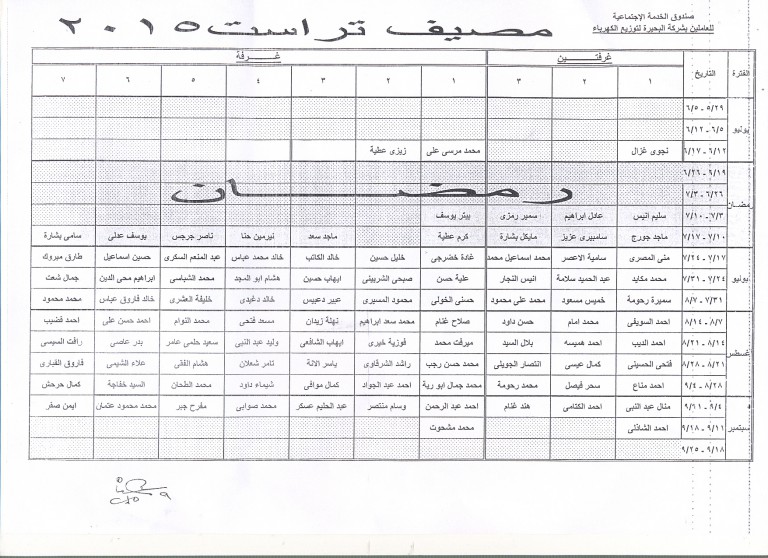 صندوق الخدمة الإجتماعية
للعاملين بشركة البحيرة لتوزيع الكهرباء
مصيف تراست ٢٠١٥
الفترة التاريخ غرفتين غرفة
١ ٢ ٣ ١ ٢ ٣ ٤ ٥ ٦ ٧
يونيو
٥/٢٩ - ٦/٥
٦/٥ - ٦/١٢
٦/١٢ - ٦/١٧ نجوى غزال محمد مرسى على زيزى عطية
٦/١٩ - ٦/٢٦
رمضان
٦/٢٦ - ٧/٣
رمضان
٧/٣ - ٧/١٠ سليم انيس عادل ابراهيم سمير رمزى بيتر يوسف
٧/١٠ - ٧/١٧ ماجد جورج سامبيرى عزيز مايكل بشارة كرم عطية ماجد سعد نيرمين حنا ناصر جرجس يوسف عدلى سامى بشارة
يوليو
٧/١٧ - ٧/٢٤ منى المصرى سامية الاعصر محمد اسماعيل محمد غادة خضرجى خليل حسين خالد الكاتب خالد محمد عباس عبد المنعم السكرى حسين اسماعيل طارق مبروك
٧/٢٤ - ٧/٣١ محمد مكايد عبد الحميد سلامة انيس النجار علية حسن صبحى الشربينى ايهاب حسين هشام ابو المجد محمد الشباسى ابراهيم محى الدين جمال شعت
٧/٣١ - ٨/٧ سميرة رحومة خميس مسعود محمد على محمود حسنى الخولى محمود المسيرى عبير دعبيس خالد دغيدى خليفة العشرى خالد فاروق عباس محمد محمود
اغسطس
٨/٧ - ٨/١٤ احمد السويفى محمد امام حسن داود صلاح غنام محمد سعد ابراهيم نهلة زيدان مسعد فتحى محمد التوام احمد حسن على احمد قضيب
٨/١٤ - ٨/٢١ احمد الديب احمد هميسه بلال السيد ميرفت محمد فوزية خيرى ايهاب الشافعى وليد عبد النبى سعيد حلمى عامر بدر عاصى رافت السيسى
٨/٢١ - ٨/٢٨ فتحى الحسينى كمال عيسى انتصار الجويلى محمد حسن رجب راشد الشرقاوى ياسر الانة تامر شعلان هشام الفقى علاء الشيمى فاروق القبارى
٨/٢٨ - ٩/٤ احمد مناع سحر فيصل محمد رحومة محمد جمال ابو رية احمد عبد الجواد كمال موافى شيماء داود محمد الطحان السيد خفاجة كمال حرحش
٩/٤ - ٩/١١ منال عبد النبى احمد الكتامى هند غنام احمد عبد الرحمن وسام منتصر عبد الحليم عسكر محمد صوابى مفرح جبر محمد محمود عثمان ايمن صقر
سبتمبر
٩/١١ - ٩/١٨ احمد الشاذلى محمد مشحوت
٩/١٨ - ٩/٢٥